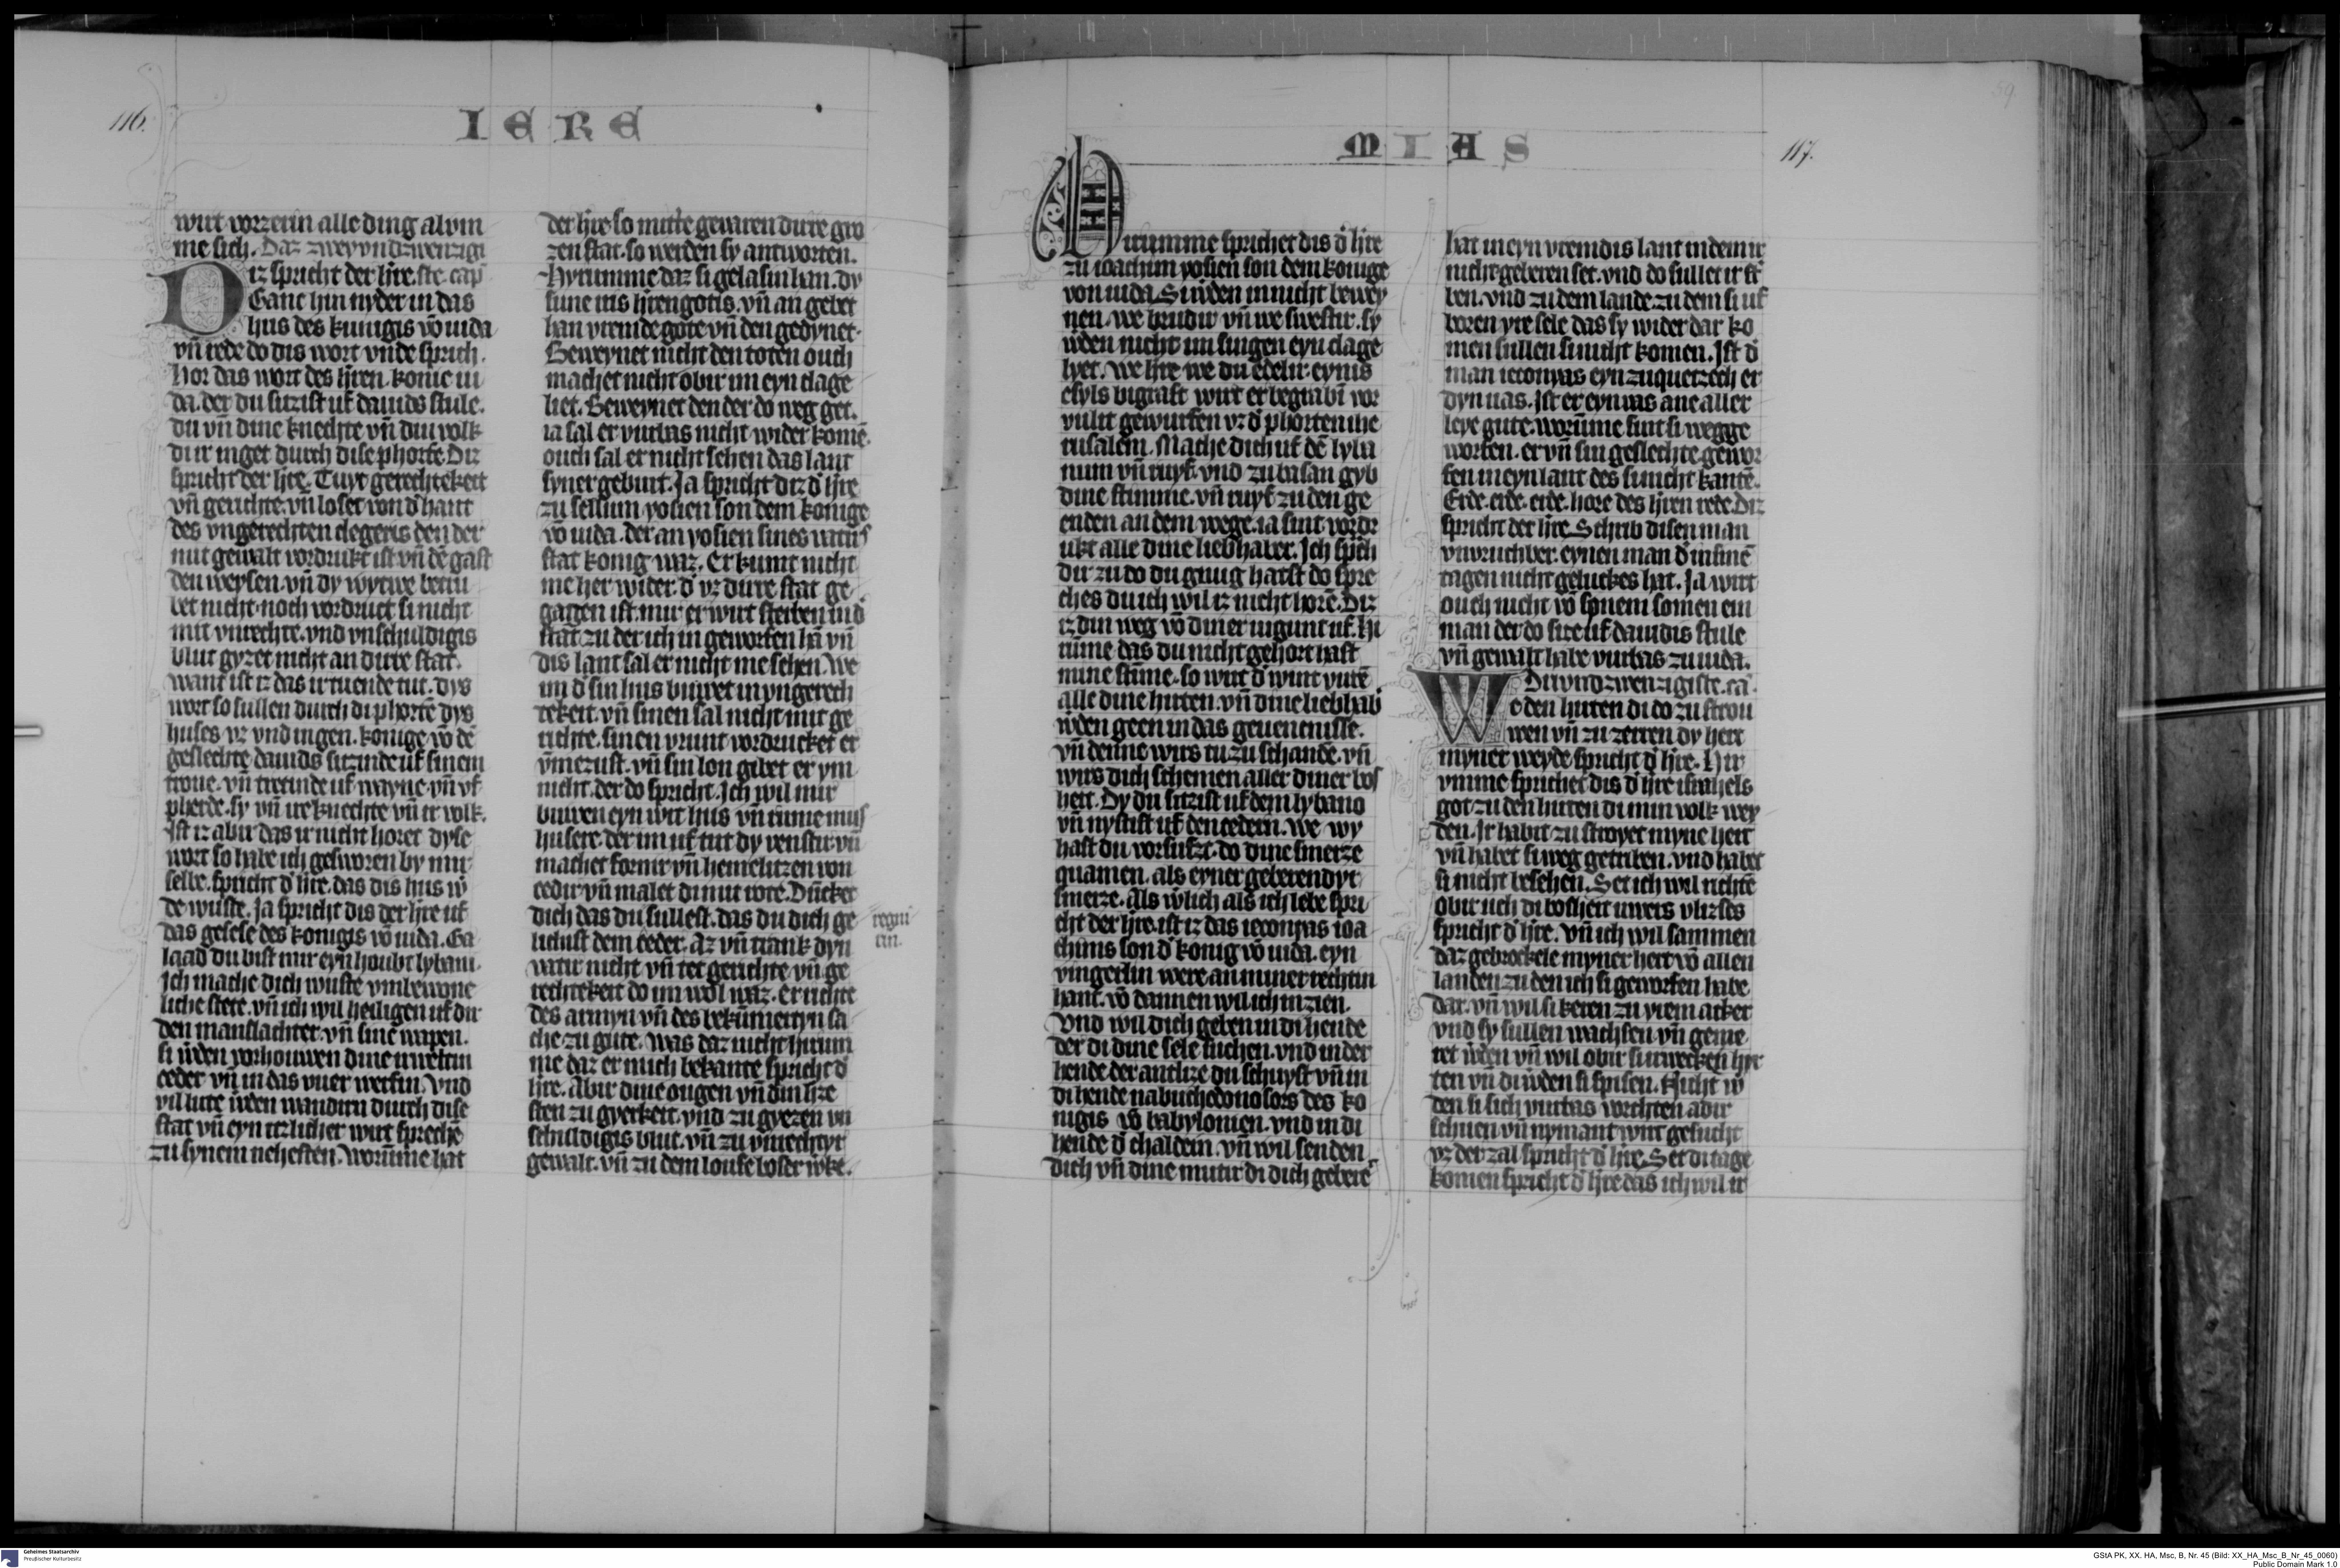 116.
IERE
wirt vorzerin alle ding al vm
me sich. Daz zweyvndzwenzigi
Diz spricht der h're. ste. cap
Ganc hin nyder in das
hus des kunigis vō iuda
vn̄ rede do dis wort vnde sprich.
Hor das wort des h'ren. konic iu
da. der du sitzist uf dauids stule.
du vn̄ dine knechte vn̄ din volk
di ir inget durch dise phorte. Diz
spricht der h're. Tuyt gerechtekeit
vn̄ gerichte. vn̄ loset von d' hant
des vngerechten clegeris den der
mit gewalt vordrukt ist vn̄ dē gast
den weysen. vn̄ dy wytwe betru
bet nicht. noch vordruct si nicht
mit vnrechte. vnd vnschuldigis
blut gyzet nicht an dirre stat.
want ist iz das ir tuende tut. dys
wort so sullen durch di phortē dys
huses vz vnd in gen. konige vō dē
geslechte dauids sitzinde uf sinem
trone. vn̄ tretinde uf wayne. vn̄ vf
pherde. sy vn̄ ire knechte vn̄ ir volk.
Ist iz abir das ir nicht horet dyse
wort so habe ich gesworen by mir
selbe. spricht d' h're. das dis hus w'
de wuste. Ja spricht dis der h're uf
das gesese des konigis vō iuda. Ga
laad du bist mir eyn houbt lybani.
Ich mache dich wuste vmbewone
liche stete. vn̄ ich wil heiligen uf dir
den manslachter. vn̄ sine wapen.
si w'den vorhouwen dine irweltin
ceder vn̄ in das vuer werfin. Vnd
vil lute w'den wandirn durch dise
stat vn̄ eyn itzlicher wirt sprechē
zu synem nehesten. Worūme hat
der h're so mitte gevaren dirre gro
zen stat. so werden sy antworten.
Hyrumme daz si gelasin han. dy
sune iris h'ren gotis. vn̄ an gebet
han vremde gote vn̄ den gedynet.
Beweynet nicht den toten ouch
machet nicht obir im eyn clage
liet. Beweynet den der do weg get.
ia sal er vurbas nicht wider komē.
ouch sal er nicht sehen das lant
syner geburt. Ja spricht diz d' h're
zu sellum yosien son dem konige
vō iuda. der an yosien sines vatirs
stat konig waz. Er kumt nicht
me her wider. d' vz dirre stat ge
gangen ist. mir er wirt sterben in d'
stat zu der ich in geworfen hā vn̄
dis lant sal er nicht me sehen. We
im d' sin hus buwet in vngerech
tekeit. vn̄ sinen sal nicht mit ge
richte. sinen vrunt vordrucket er
vmezust. vn̄ sin lon gibet er ym
nicht. der do spricht. Ich wil mir
buwen eyn wit hus vn̄ rume mus
husere. der im uf tut dy venstir. vn̄
machet fornir vn̄ hemelitzen von
cedir vn̄ malet di mit rote. Dūcket
dich das du sullest. das du dich ge
lichist dem ceder. Az vn̄ trank dyn
vatir nicht vn̄ tet gerichte vn̄ ge
rechtekeit do im wol waz. er richte
des armyn vn̄ des bekūmertyn sa
che zu gute. Was daz nicht hirum
me daz er mich bekante spricht d'
h're. Abir dine ougen vn̄ din h'ze
sten zu gyerkeit. vnd zu gyezen vn
schuldigis blut. vn̄ zu vnrechtyr
gewalt. vn̄ zu dem loufe boser w'ke.
regni
rin.
MIAS
117.
59
Dirumme sprichet dis d' h're
zu ioachim yosien son dem konige
von iuda. Si w'den in nicht bewey
nen. we brudir vn̄ we swestir. sy
w'den nicht im singen eyn clage
lyet. We h're we du edelir. eynis
esyls bigraft wirt er begrabī vor
vulit gewurfen vz d' phorten ihe
rusalem. Mache dich uf dē lyba
num vn̄ ruyf. vnd zu basan gyb
dine stimme. vn̄ ruyf zu den ge
enden an dem wege. ia sint vordr
ukt alle dine liebhaber. Ich sp'ch
dir zu do du gnug hatst do spre
ches du ich wil iz nicht horē. Diz
iz din weg vō diner iugunt uf. Hi
rūme das du nicht gehort hast
mine stīme. so wirt d' wint vutē
alle dine hirten. vn̄ dine liebhab
w'den geen in das geuencnisse.
vn̄ denne wirs tu zu schande. vn̄
wirs dich schemen aller diner bos
heit. Dy du sitzist uf dem lybano
vn̄ nystist uf den cedern. We wy
hast du vorsufzt. do dine smerze
quamen. als eyner geberendyr
smerze. Als w'lich als ich lebe spri
cht der h're. ist iz das ieconyas ioa
chims son d' konig vō iuda. eyn
vingerlin were an miner rechtin
hant. vō dannen wil ich in zien.
Vnd wil dich geben in di hende
der di dine sele suchen. vnd in der
hende der antlize du schuyst vn̄ in
di hende nabuchodonosors des ko
nigis vō babylonien. vnd in di
hende d' chaldein. vn̄ wil senden
dich vn̄ dine mutir di dich geberē
hat in eyn vremdis lant in dem ir
nicht geberen set. vnd do sullet ir st'
ben. vnd zu dem lande zu dem si uf
boren yre sele das sy wider dar ko
men sullen si nicht komen. Ist d'
man ieconyas eyn zuquetzech er
dyn uas. Ist er eyn uas ane aller
leye gute. worūme sint si wegge
worfen. er vn̄ sin geslechte gewor
fen in eyn lant des si nicht kantē.
Erde. erde. erde. hore des h'ren rede. Diz
spricht der h're. Schrib disen man
vnvruchber. eynen man d' in sinē
tagen nicht geluckes hat. Ja wirt
ouch nicht vō synem somen ein
man der do sitze uf dauidis stule
vn̄ gewalt habe vurbas zu iuda.
Drivndzwenzigiste. ca.
We den hirten di do zu strou
wen vn̄ zu zerren dy hert
myner weyde spricht d' h're. Hir
vmme sprichet dis d' h're israhels
got zu den hirten di min volk wey
den. Ir habit zu stroyet myne hert
vn̄ habet si weg getriben. vnd habet
si nicht besehen. Set ich wil richtē
obir uch di bosheit uwers vlizses
spricht d' h're. Vn̄ ich wil sammen
daz gebrockele myner hert vō allen
landen zu den ich si geworfen habe
dar. vn̄ wil si keren zu yrem acker
vnd sy sullen wachsen vn̄ geme
ret w'den vn̄ wil obir si irwecken hir
ten vn̄ di w'den si spisen. Nicht w'
den si sich vurbas vorchten abir
schuen vn̄ nymant wirt gesucht
vz der zal spricht d' h're. Set di tage
komen spricht d' h're das ich wil ir
Geheimes Staatsarchiv
Preußischer Kulturbesitz
GStA PK, XX. HA, Msc, B, Nr. 45 (Bild: XX_HA_Msc_B_Nr_45_0060)
Public Domain Mark 1.0